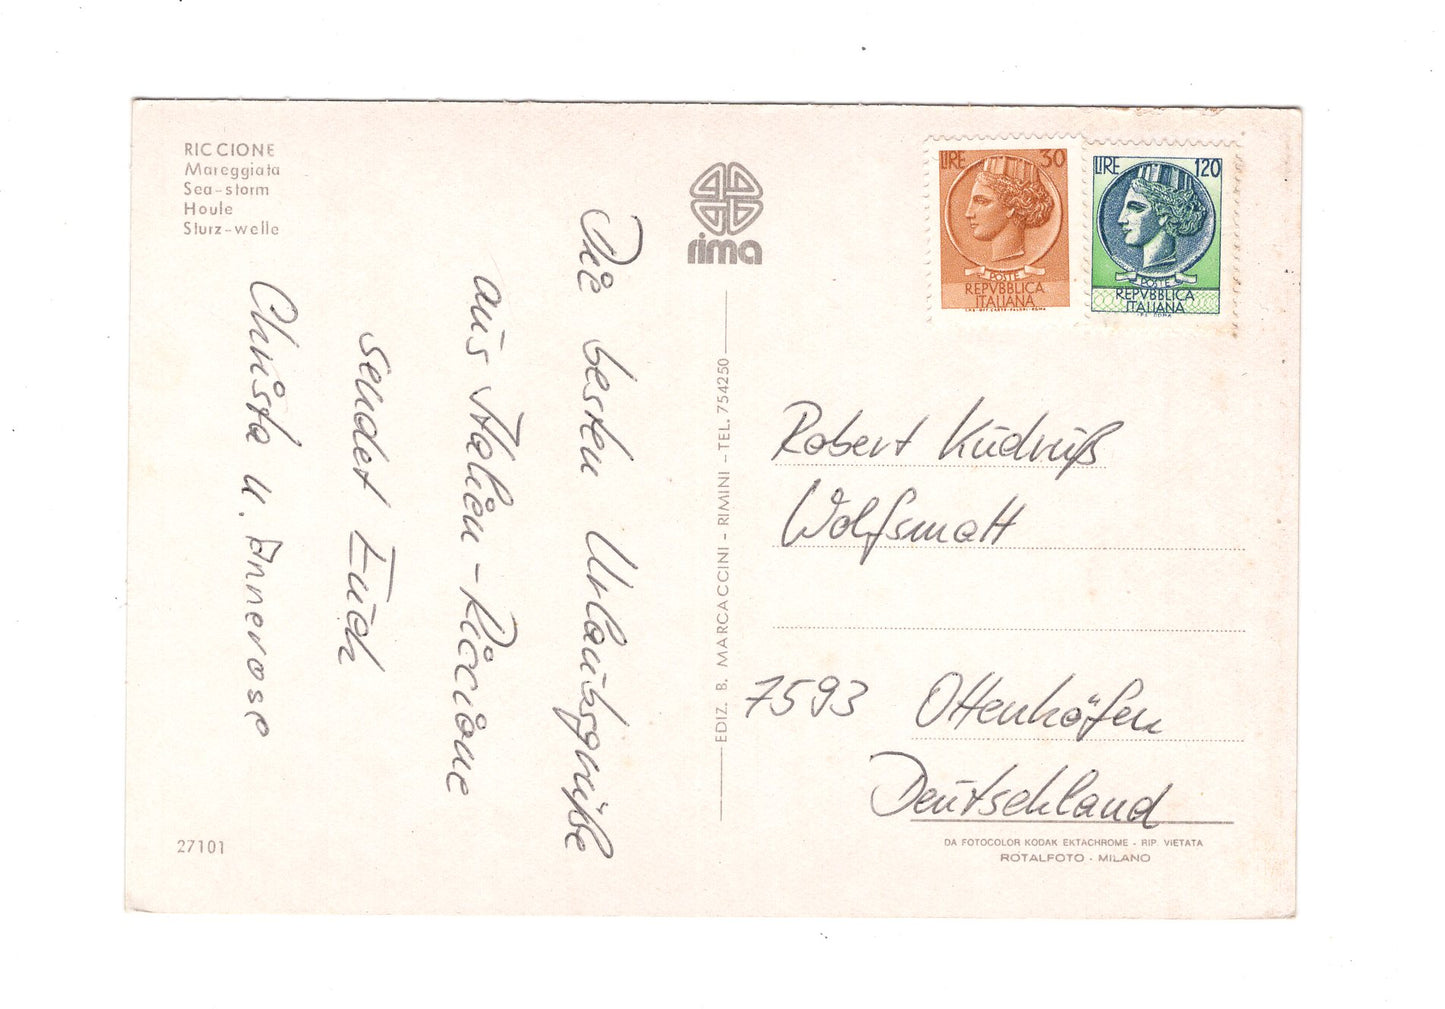 RICCIONE
Mareggiata
Sea-storm
Houle
Sturz-welle
rima
LIRE 30
POSTE
REPVBBLICA
ITALIANA
LIRE 120
POSTE
REPVBBLICA
ITALIANA
Die besten Urlaubsgrüße
aus Italien - Riccione
sendet Euch
Christa u. Annerose
EDIZ. B. MARCACCINI - RIMINI - TEL. 754250
Robert Kudruß
Wolfsmatt
7593 Ottenhöfen
Deutschland
27101
DA FOTOCOLOR KODAK EKTACHROME - RIP. VIETATA
ROTALFOTO - MILANO